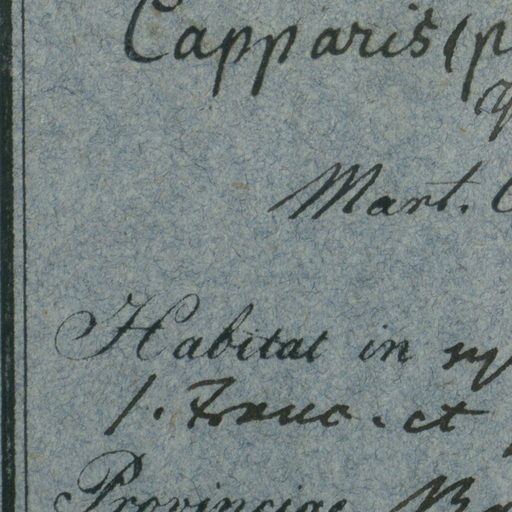 Capparis (p
Mart. C
Habitat in sy
1. Franc. et
Provinciae Ba